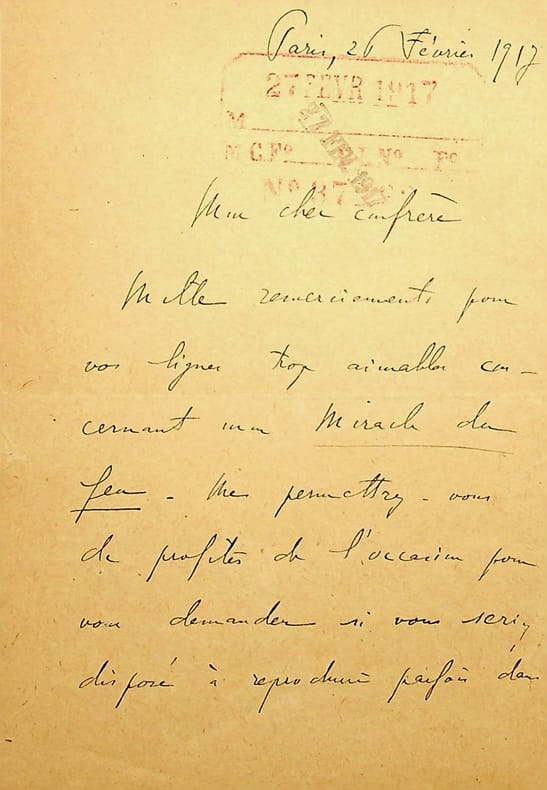 Paris, 26 Février 1917
27 FEVR 1917
M
M C. Fº Nº Fº
Nº 87
Mon cher confrère
Mille remerciements pour
vos lignes trop aimables con-
cernant mon Miracle du
feu - Me permettrez-vous
de profiter de l'occasion pour
vous demander si vous seriez
disposé à reproduire parfois dans